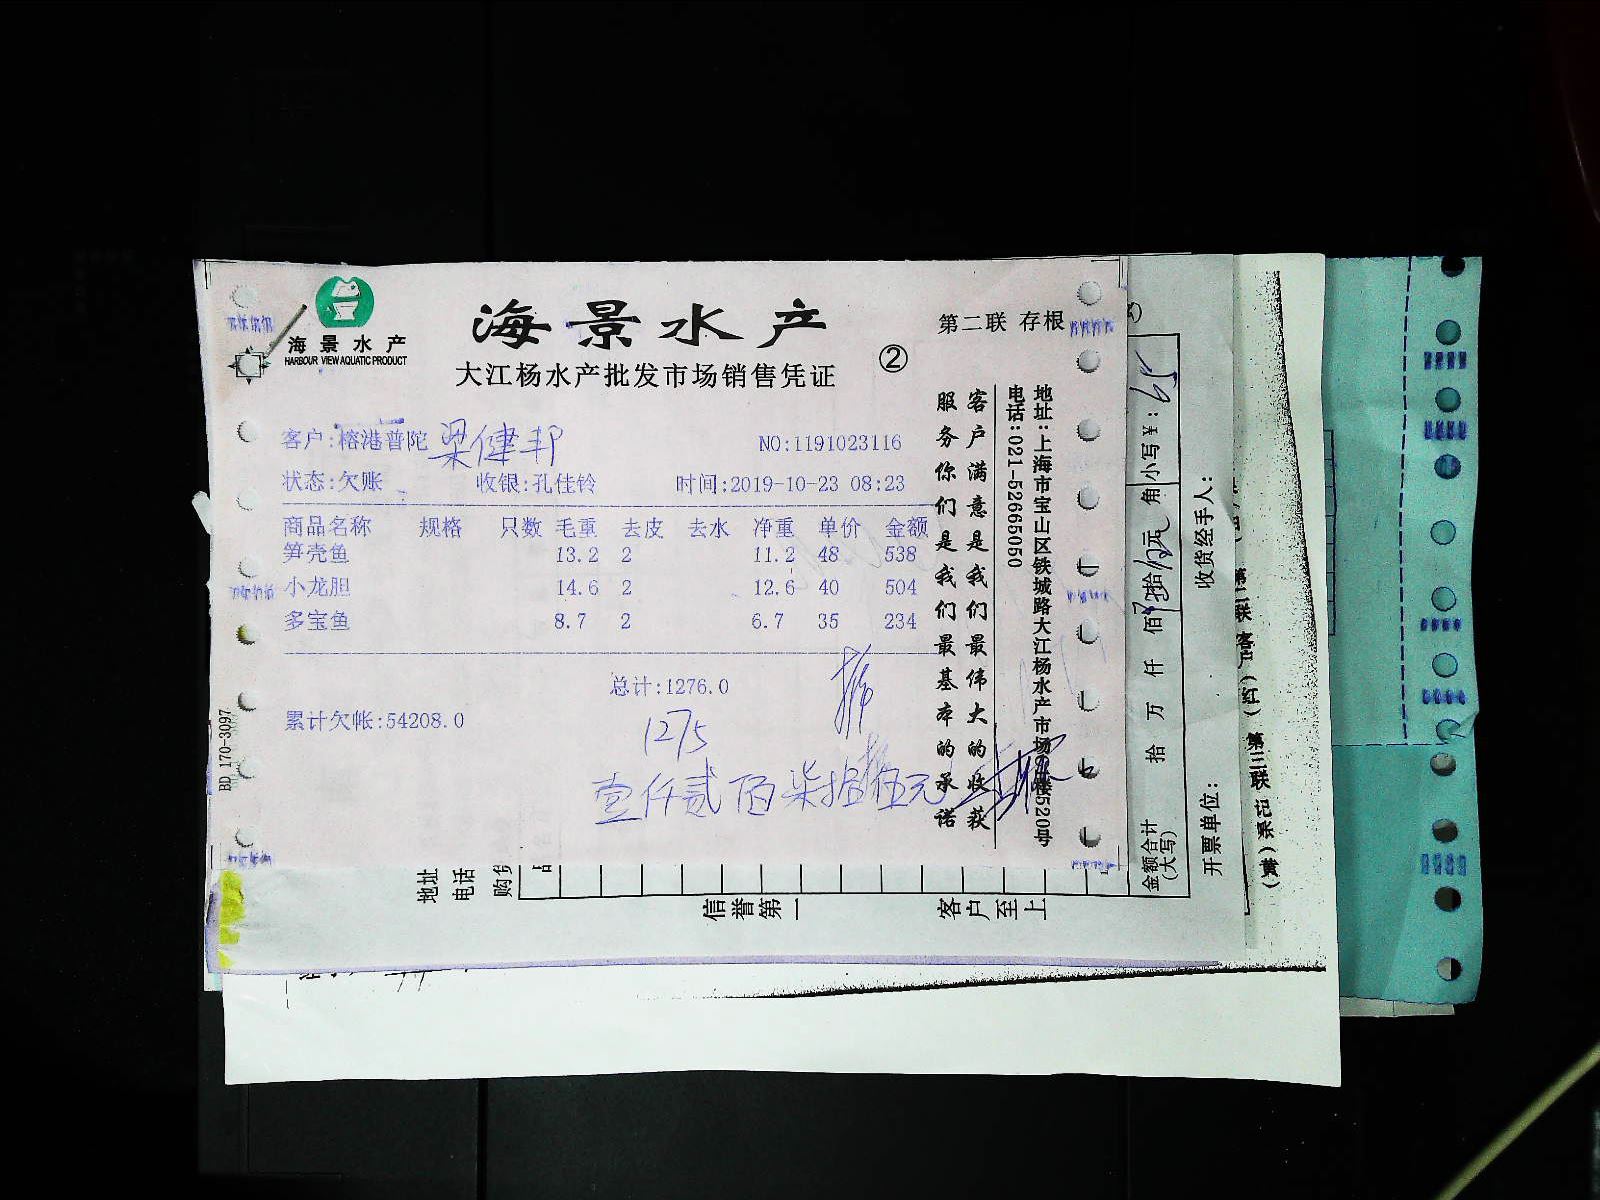 海景水产
HARBOUR VIEW AQUATIC PRODUCT
海景水产
大江杨水产批发市场销售凭证
②
第二联 存根
客户:榕港普陀 梁健邦
NO:1191023116
状态:欠账 收银:孔佳铃 时间:2019-10-23 08:23
商品名称 规格 只数 毛重 去皮 去水 净重 单价 金额
笋壳鱼 13.2 2 11.2 48 538
小龙胆 14.6 2 12.6 40 504
多宝鱼 8.7 2 6.7 35 234
总计:1276.0
累计欠帐:54208.0
1275
壹仟贰佰柒拾伍元
BD 170-3097
客户满意是我们最伟大的收获
服务你们是我们最基本的承诺
地址:上海市宝山区铁城路大江杨水产市场
520号
电话:021-52665050
地址
电话
信誉第一
客户至上
金额合计
(大写)
拾 万 仟 佰 拾 元 角
小写¥:
开票单位:
收货经手人:
第二联客户(红)
第三联